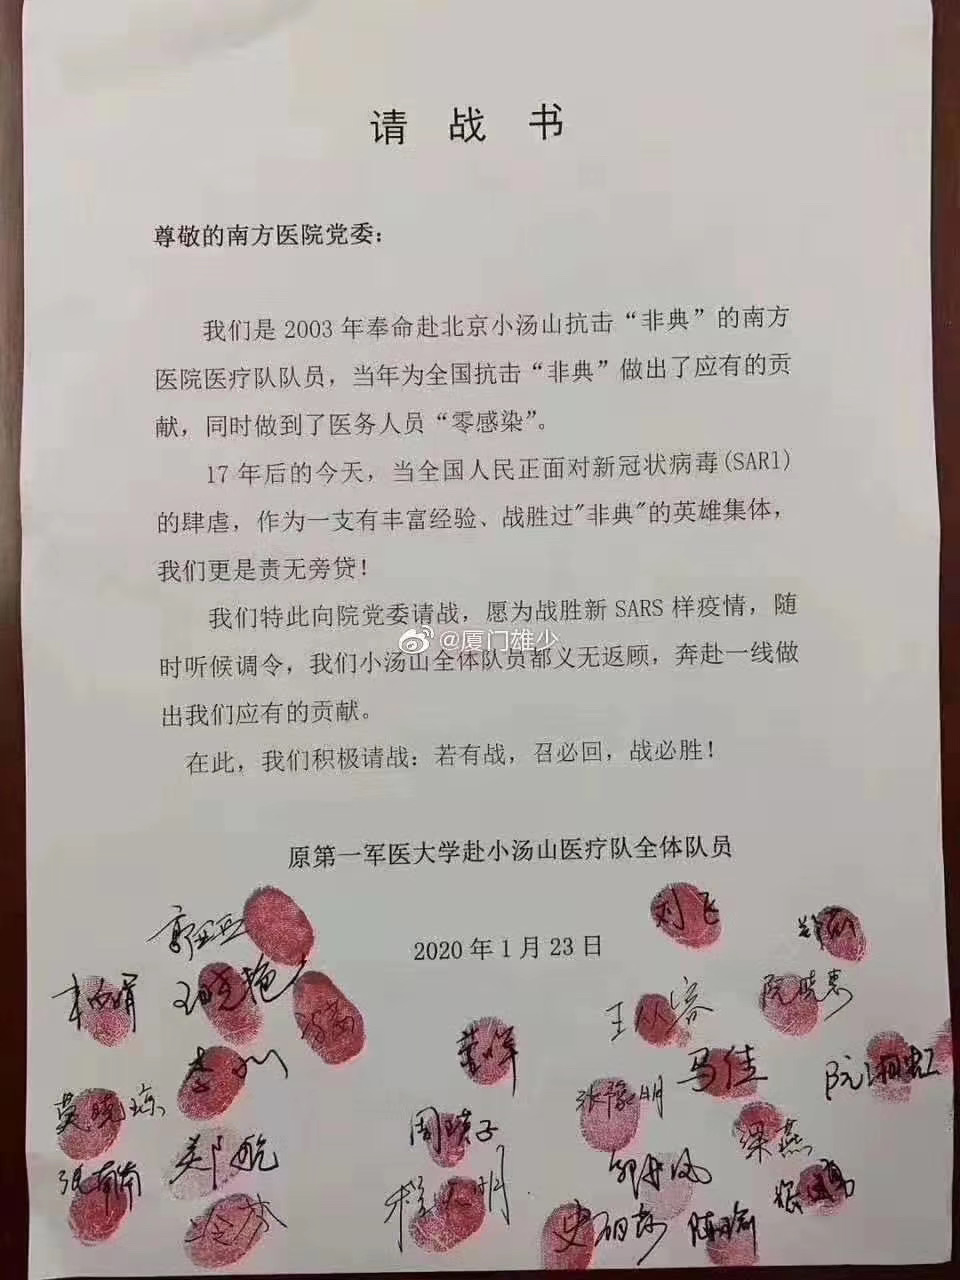 请战书
尊敬的南方医院党委：
我们是2003年奉命赴北京小汤山抗击“非典”的南方
医院医疗队队员，当年为全国抗击“非典”做出了应有的贡
献，同时做到了医务人员“零感染”。
17年后的今天，当全国人民正面对新冠状病毒(SARI)
的肆虐，作为一支有丰富经验、战胜过"非典"的英雄集体，
我们更是责无旁贷！
我们特此向院党委请战，愿为战胜新SARS样疫情，随
@厦门雄少
时听候调令，我们小汤山全体队员都义无返顾，奔赴一线做
出我们应有的贡献。
在此，我们积极请战：若有战，召必回，战必胜！
原第一军医大学赴小汤山医疗队全体队员
刘飞
2020年1月23日
王晓艳
阮晓惠
马佳
阮湘虹
张豫明
莫晓琼
周瑛子
梁燕
郑航
张南南
冷芬
陈瑜